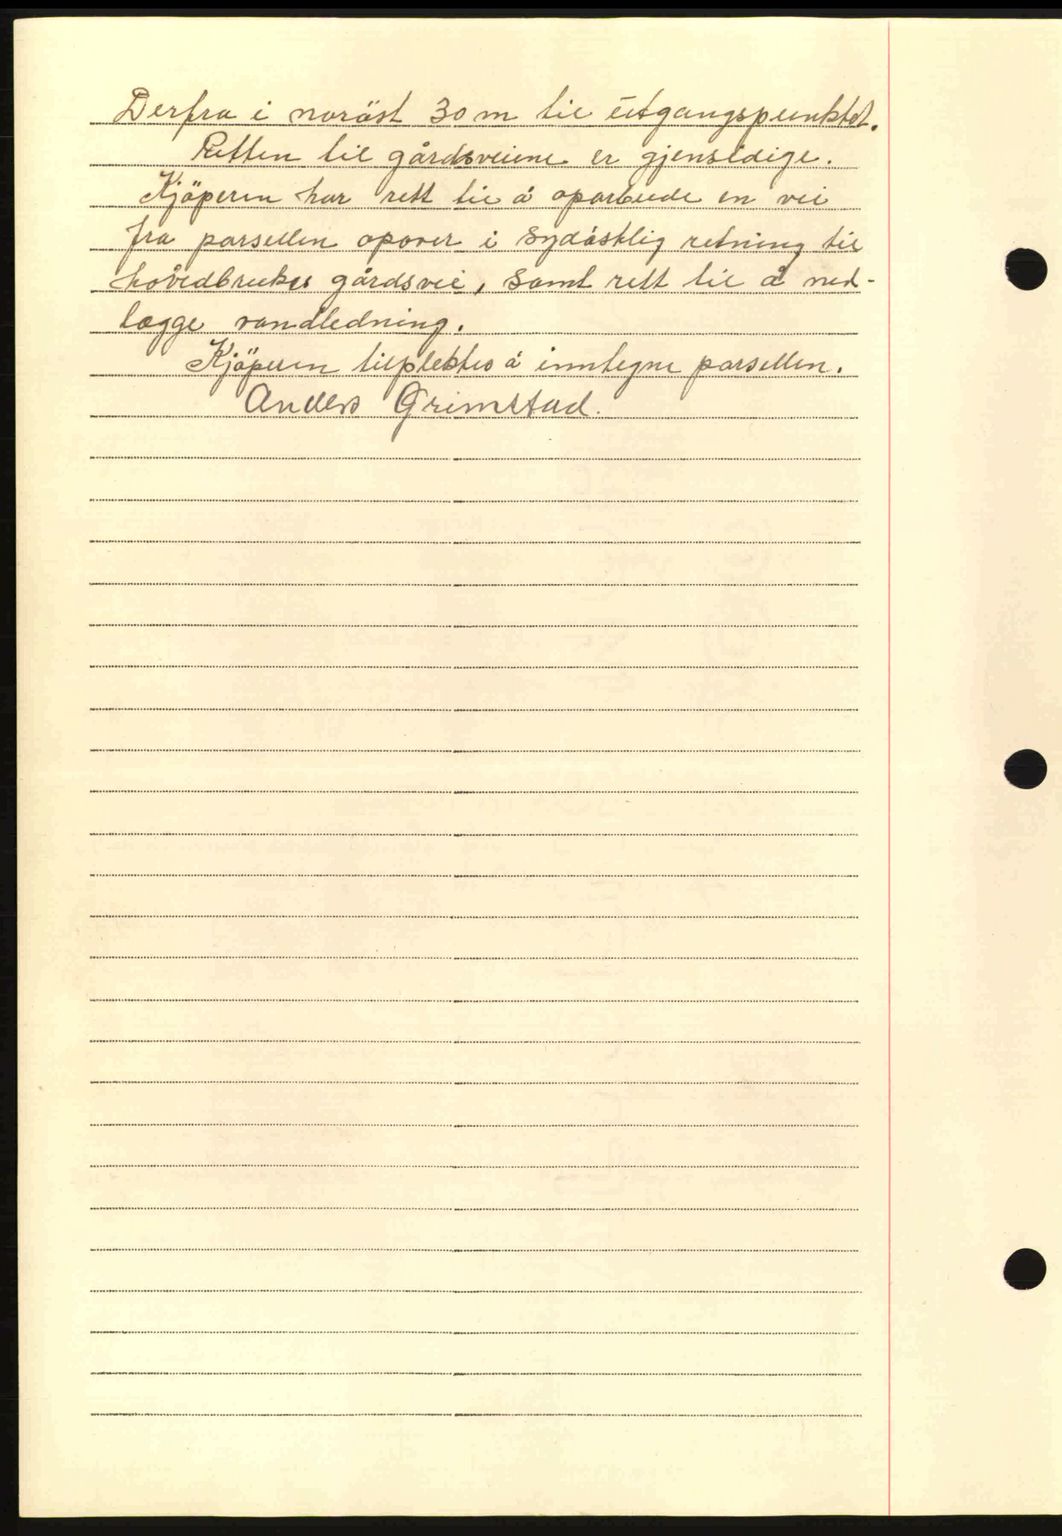 Derfra i noröst 30 m til útgangspunktet.
Retten til gårdsveiene er gjensidige.
Kjöperen har rett til å oparbeide en vei
fra parsellen opover i sydöstlig retning til
hovedbrukes gårdsvei, samt rett til å ned-
legge vandledning.
Kjöperen tilpliktes å inntegne parsellen.
Anders Grimstad.